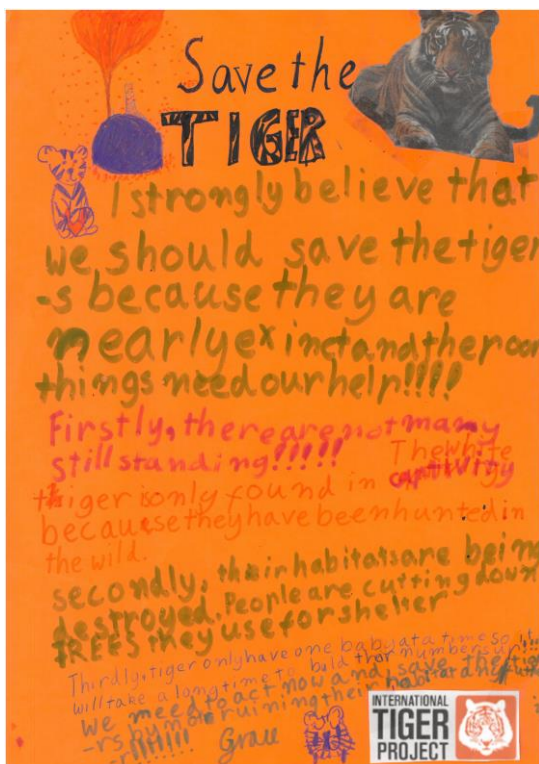 Save the
TIGER
I strongly believe that
we should save the tiger
-s because they are
nearly exinct and the poor
things need our help!!!!
Firstly, there are not many
still standing!!!!!
The white
thiger is only found in captivity
because they have been hunted in
the wild.
secondly, their habitats are being
destroyed. People are cutting down
TREES they use for shelter
Thirdly, tiger only have one baby at a time so it
will take a long time to bild thar numbers up!!!
We need to act now and save the tige
-rs by not ruining their habitat
Grace
INTERNATIONAL
TIGER
PROJECT